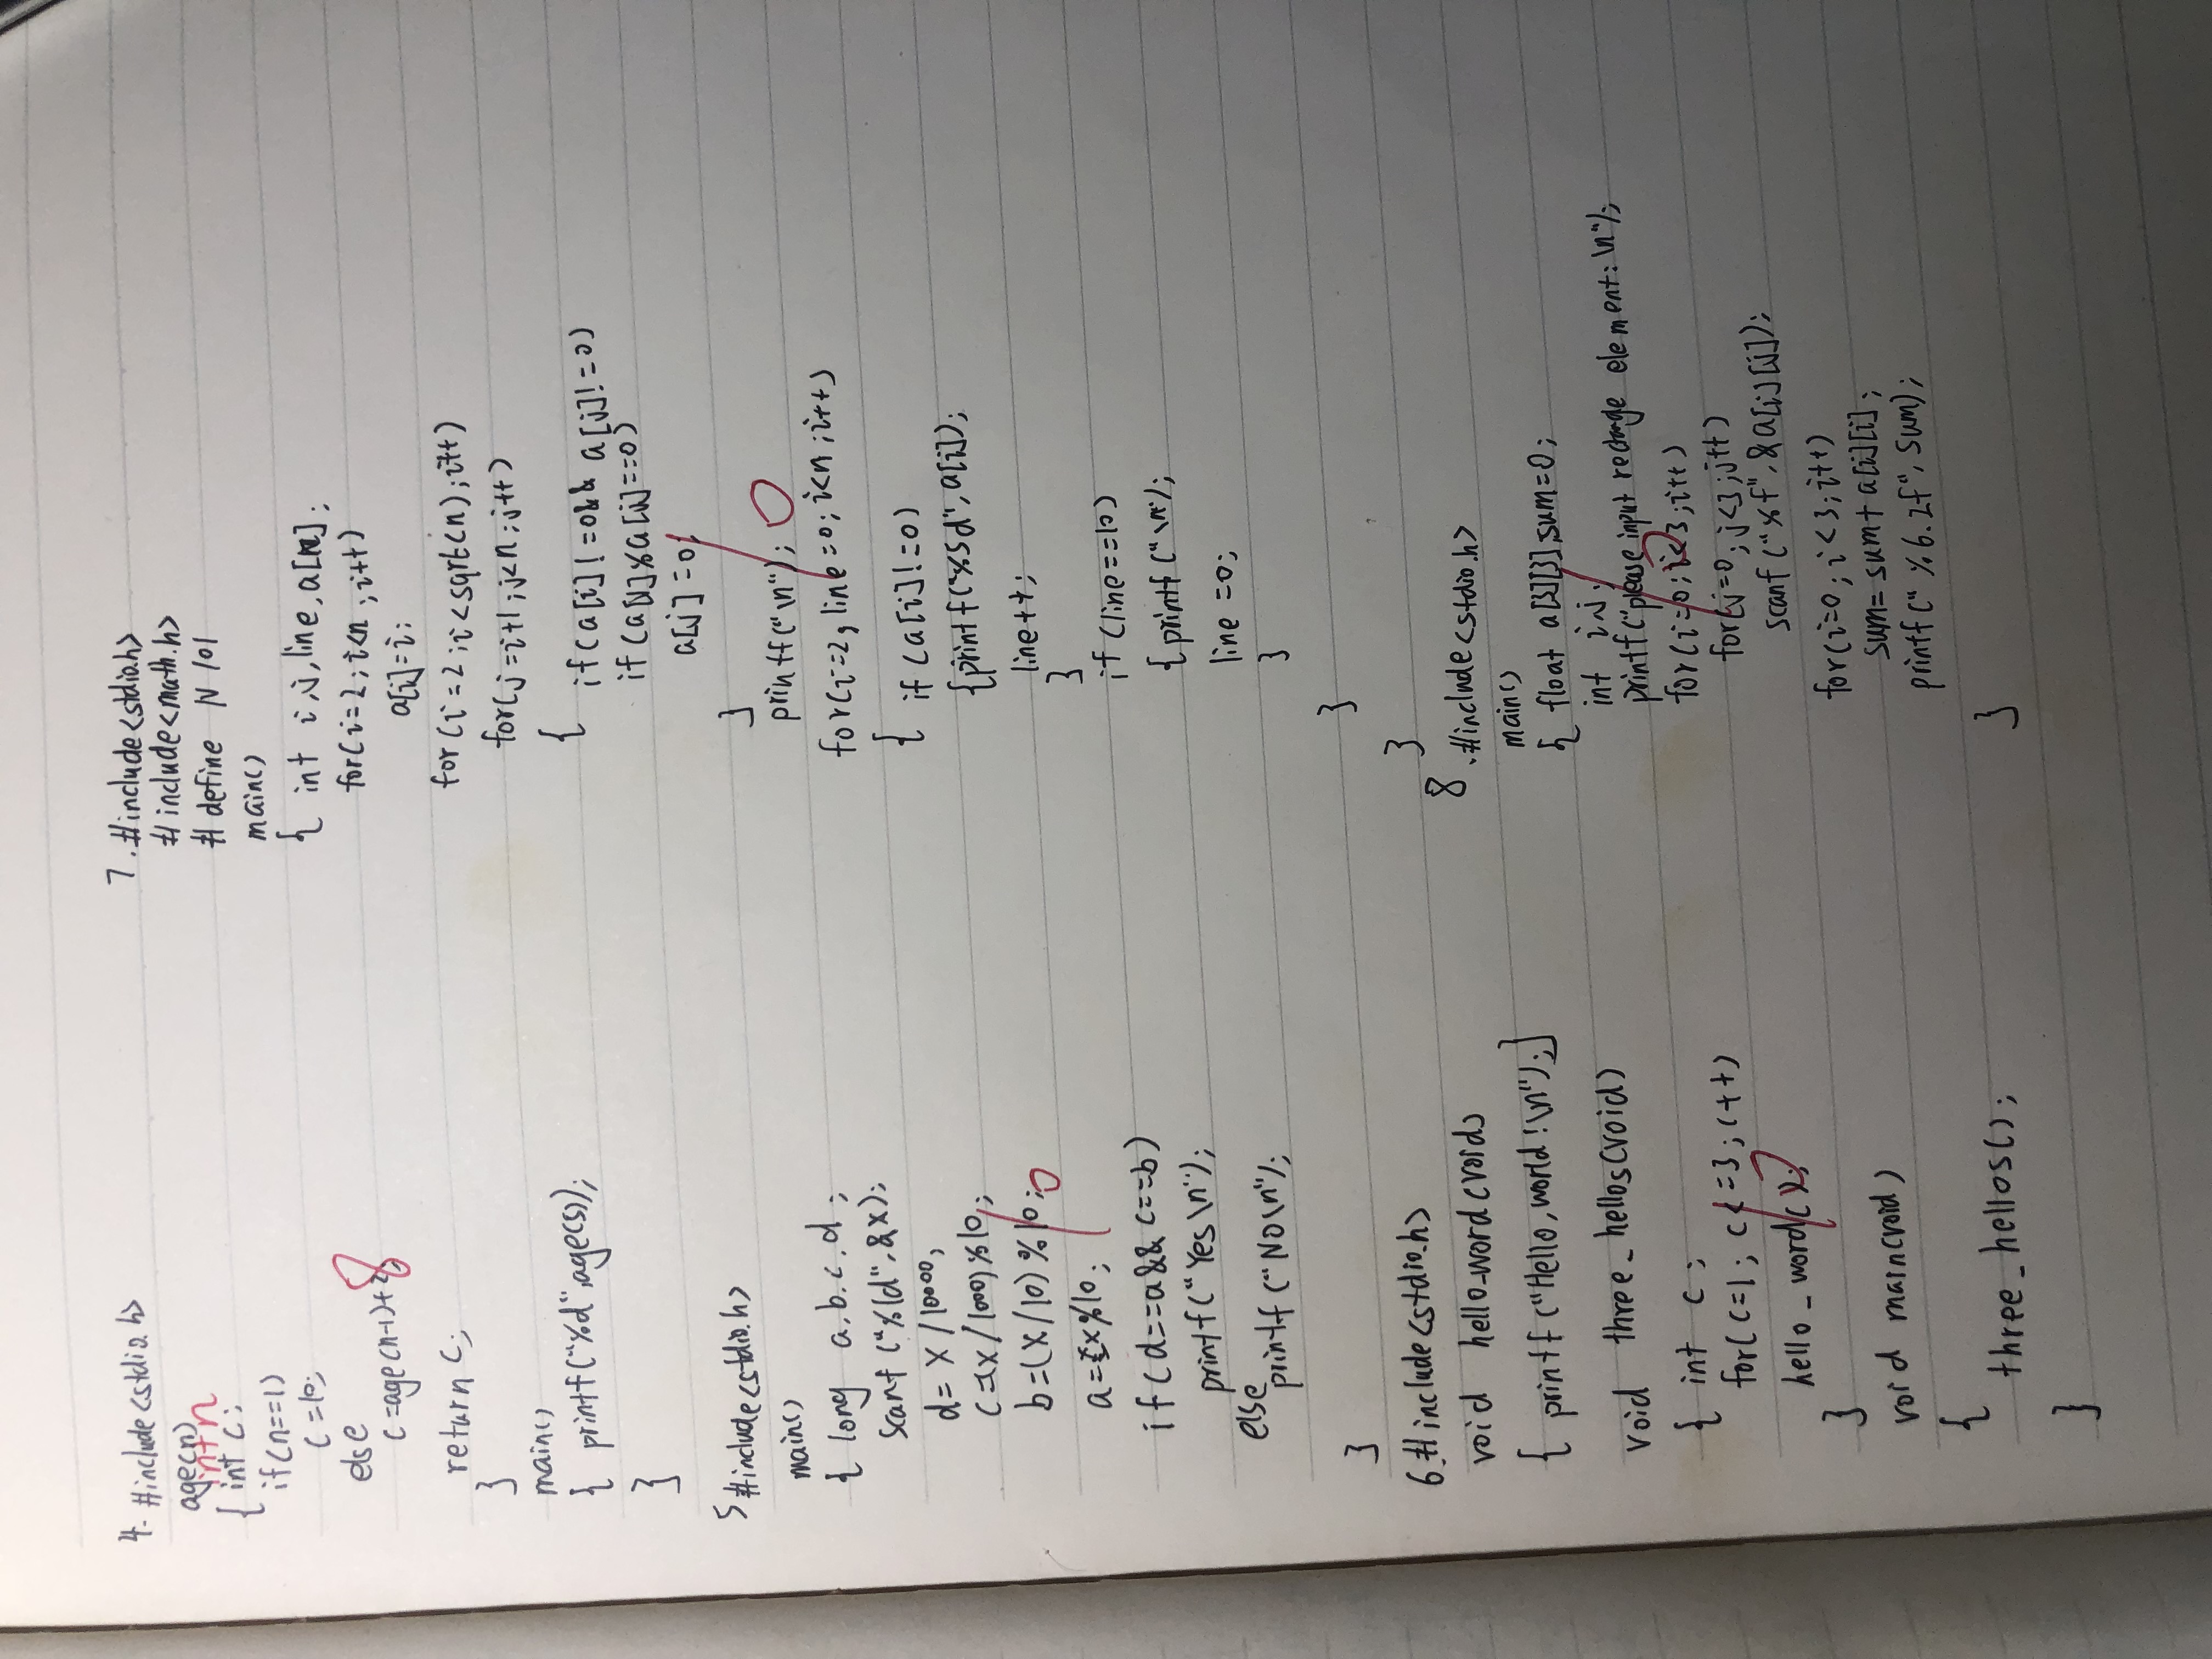 4. #include<stdio.h>
age(n)
int n
{ int c;
if(n==1)
c=10;
else
c=age(n-1)+2;
return c;
}
main()
{ printf("%d",age(5));
}
5 #include<stdio.h>
main()
{ long a.b.c.d;
scanf("%ld",&x);
d=x/10000;
c=(x/1000)%10;
b=(x/10)%10;
a=x%10;
if(d==a&&c==b)
printf("Yes\n");
else
printf("No\n");
}
6.#include<stdio.h>
void hello-word(void)
{ printf("Hello,world!\n");}
void three_hellos(void)
{ int c;
for(c=1; c<=3;c++)
hello_word();
}
void main(void)
{
three_hellos();
}
7.#include<stdio.h>
#include<math.h>
#define N 101
main()
{ int i,j,line,a[n];
for(i=2;i<n;i++)
a[i]=i;
for(i=2;i<sqrt(n);i++)
for(j=i+1;j<n;j++)
{
if(a[i]!=0&&a[j]!=0)
if(a[j]%a[i]==0)
a[j]=0;
}
printf("\n");
for(i=2,line=0;i<n;i++)
{ if(a[i]!=0)
{printf("%5d",a[i]);
line++;
}
if(line==10)
{printf("\n");
line=0;
}
}
}
8.#include<stdio.h>
main()
{ float a[3][3],sum=0;
int i,j;
printf("please input rectange element:\n");
for(i=0;i<3;i++)
for(j=0;j<3;j++)
scanf("%f",&a[i][j]);
for(i=0;i<3;i++)
sum=sum+a[i][i];
printf("%6.2f",sum);
}